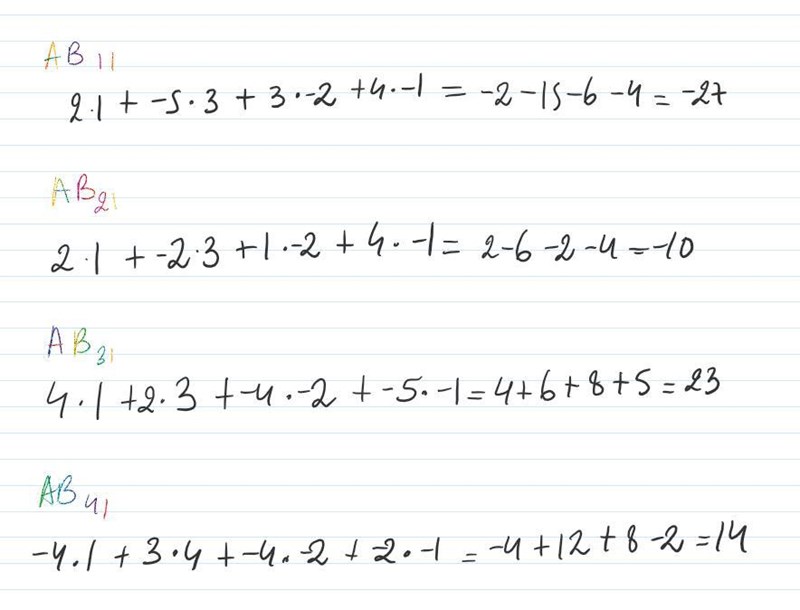 AB11
2·1 + -5·3 + 3·-2 + 4·-1 = -2-15-6-4 = -27
AB21
2·1 + -2·3 + 1·-2 + 4·-1 = 2-6-2-4 = -10
AB31
4·1 + 2·3 + -4·-2 + -5·-1 = 4+6+8+5 = 23
AB41
-4·1 + 3·4 + -4·-2 + -2·-1 = -4+12+8-2 = 14